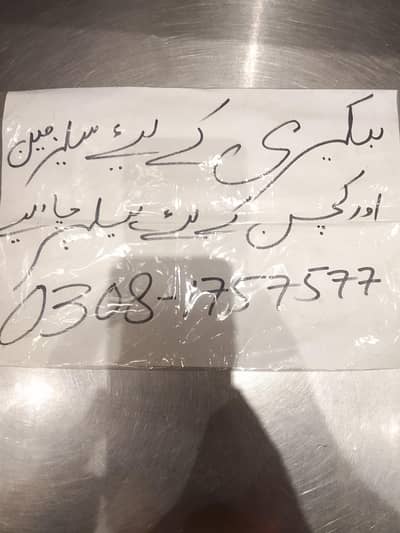 بیکری کے لیے سیلز مین
اور کچن کے لیے ہیلپر چاہیے
0308-1757577